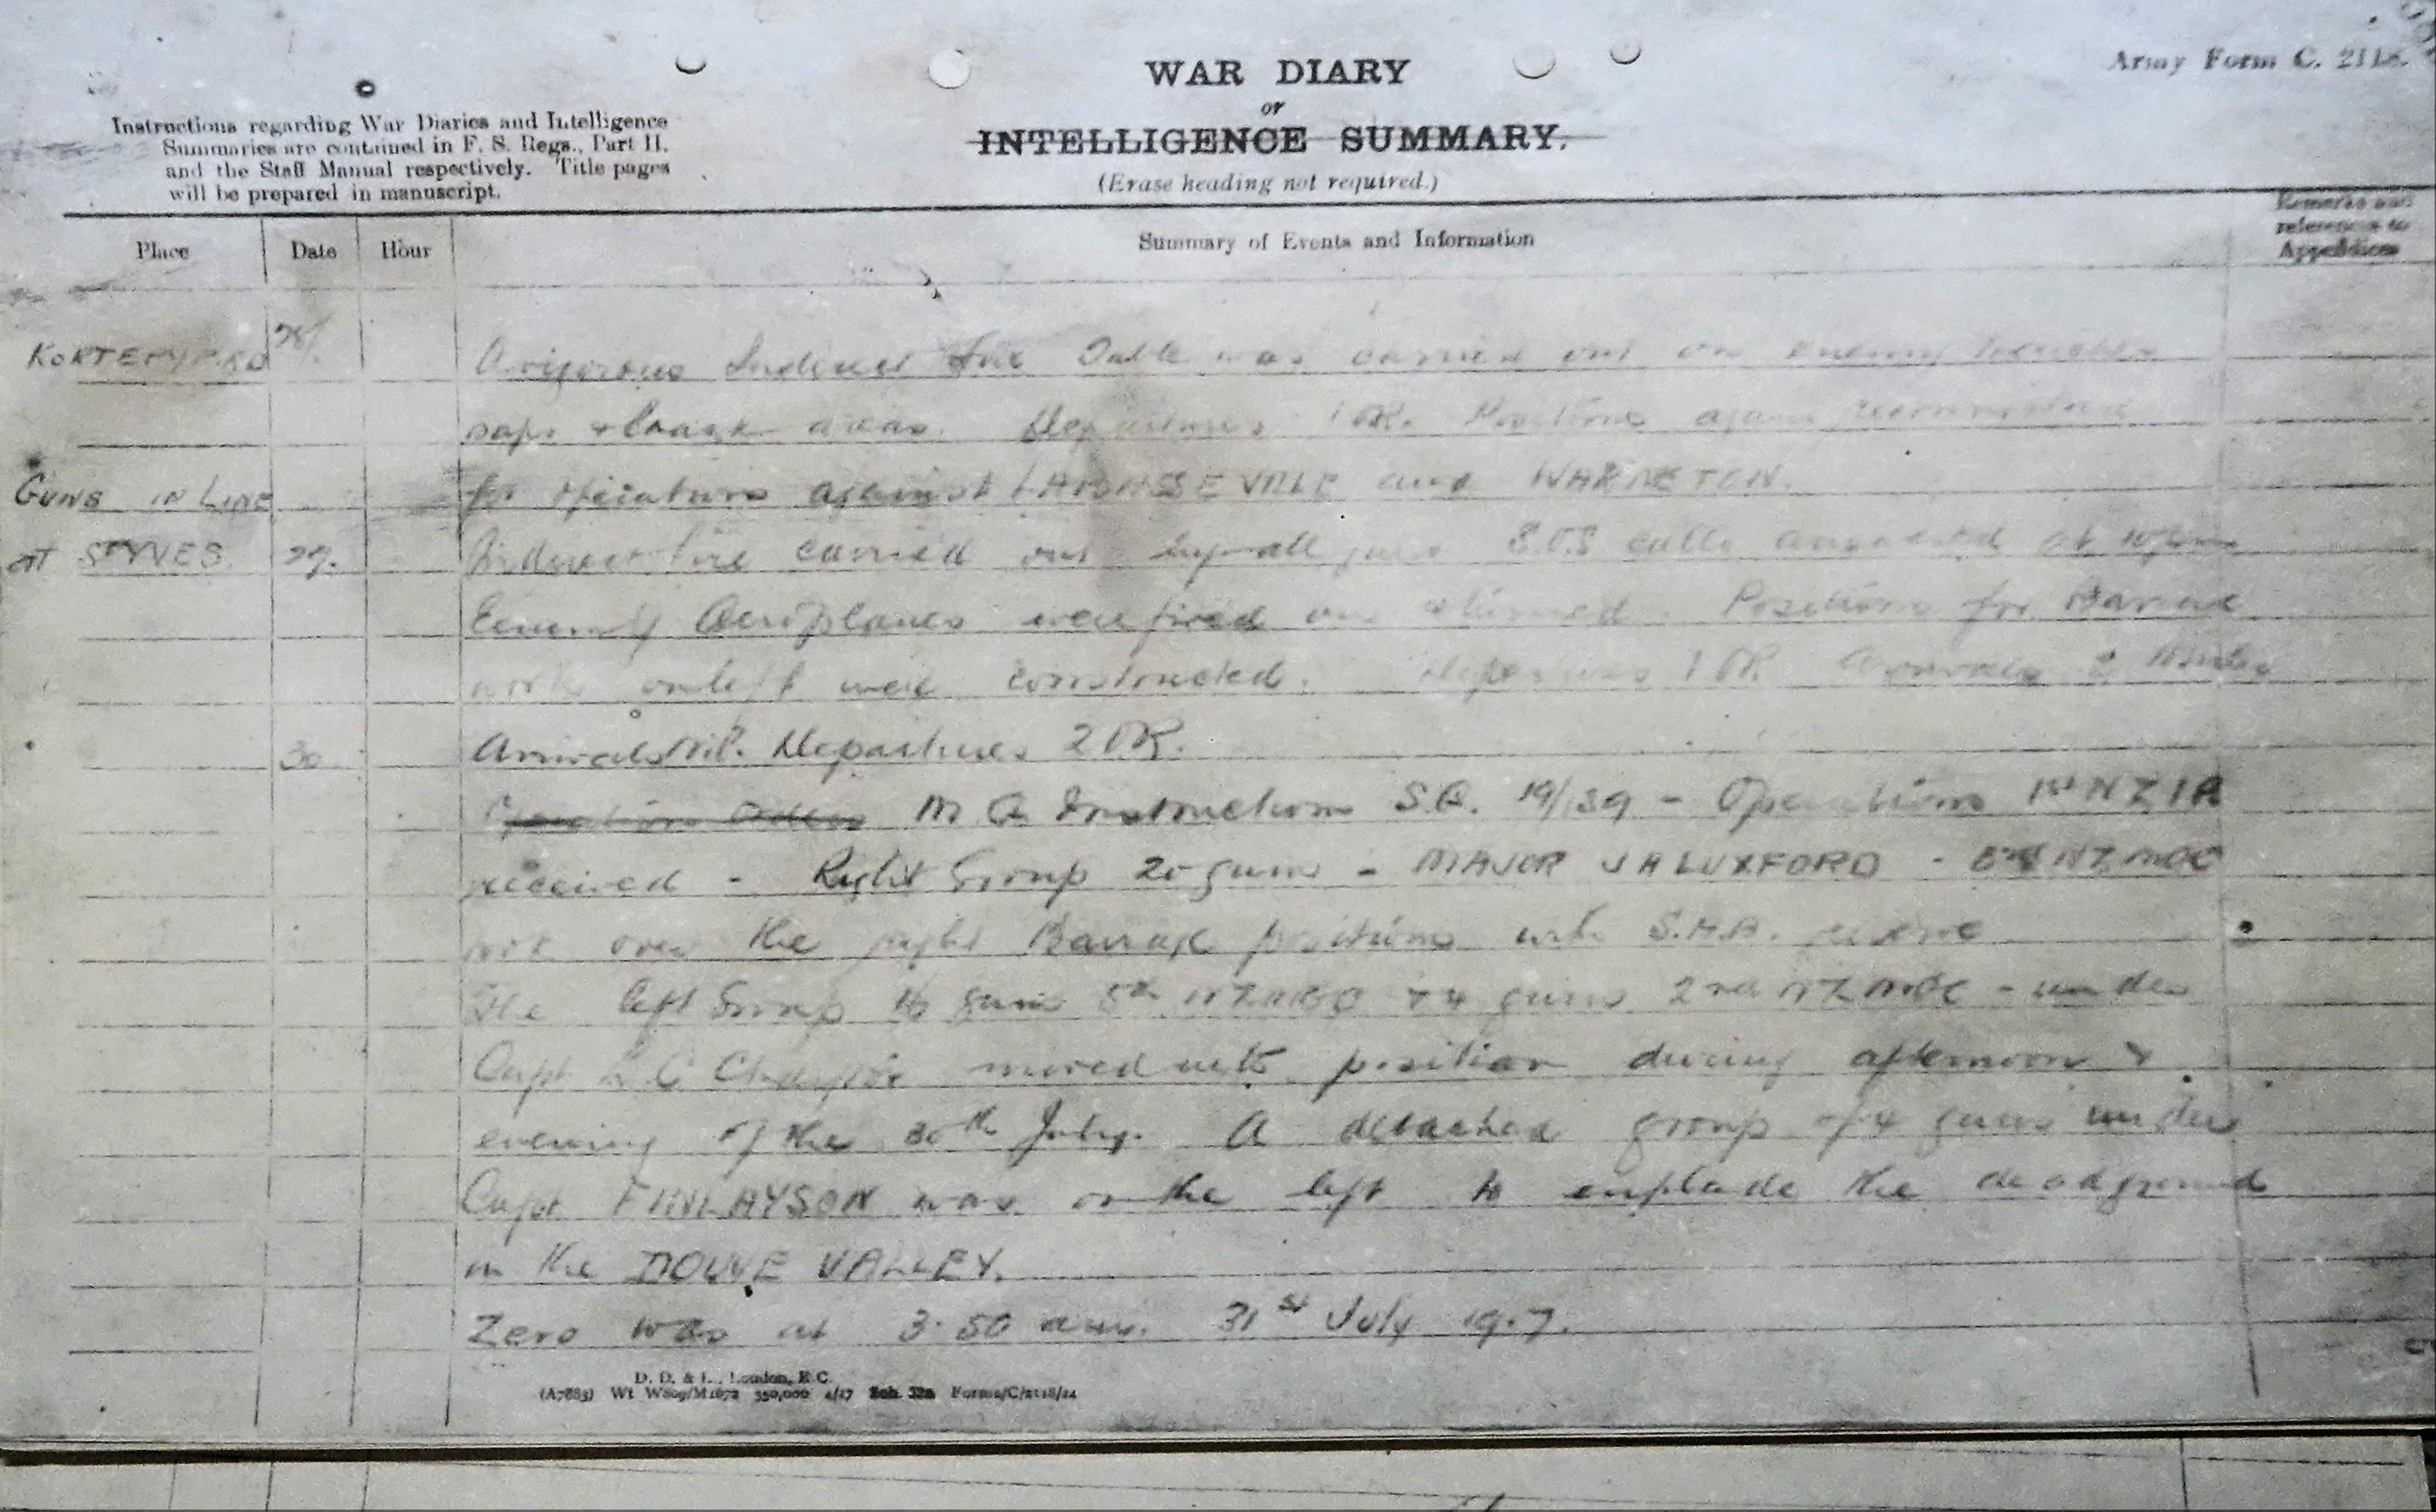 Army Form C. 2118.
WAR DIARY
or
INTELLIGENCE SUMMARY.
(Erase heading not required.)
Instructions regarding War Diaries and Intelligence
Summaries are contained in F. S. Regs., Part II.
and the Staff Manual respectively. Title pages
will be prepared in manuscript.
Place Date Hour Summary of Events and Information Remarks and references to Appendices
28/. A vigorous Indirect Fire Table was carried out on enemy trenches
saps & back areas. Departures 1 OR. Positions again reconnoitred
GUNS IN LINE for operations against and WARNETON.
AT ST YVES. 29. Indirect fire carried out by all guns SOS calls answered at
Enemy Aeroplanes were fired on & turned. Positions for Barrage
work on left were constructed. Departures 1 OR Arrivals 2
30 Arrivals Nil. Departures 2 OR.
Operations Orders M G Instructions S.G. 19/39 - Operations 1st NZIB
received - Right Group 20 guns - MAJOR J A LUXFORD - NZMGC
over the right Barrage positions with S.A.A. reserve
The left Group 16 guns 5th NZMGC & 4 guns 2nd NZMGC - under
Capt moved into position during afternoon &
evening of the 30th July. A detached group of 4 guns under
Capt FINLAYSON was on the left to enfilade the dead ground
in the DOUVE VALLEY.
Zero was at 3.50 am. 31st July 1917.
D. D. & L., London, E.C.
(A7883) Wt W809/M1672 350,000 4/17 Sch. 52a Forms/C/2118/14